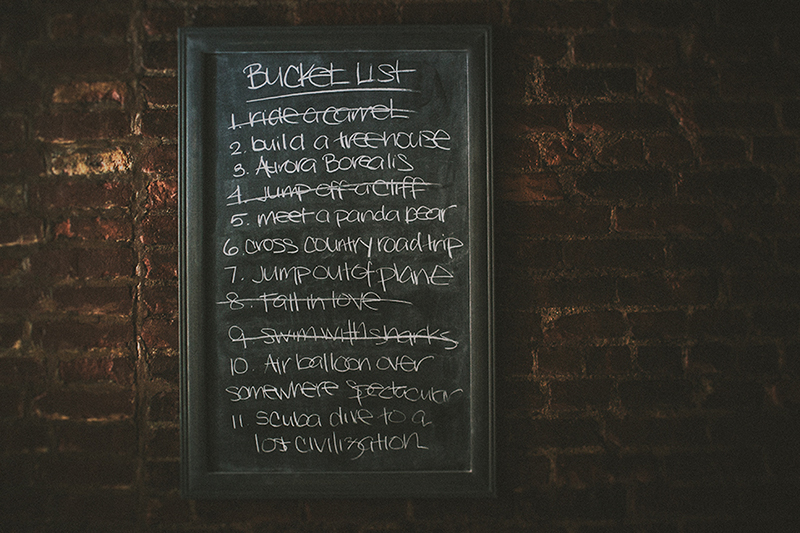 Bucket List
1. ride a camel
2. build a treehouse
3. Aurora Borealis
4. Jump off a cliff
5. meet a panda bear
6. cross country road trip
7. Jump out of plane
8. fall in love
9. swim with sharks
10. Air balloon over
somewhere spectacular
11. scuba dive to a
lost civilization